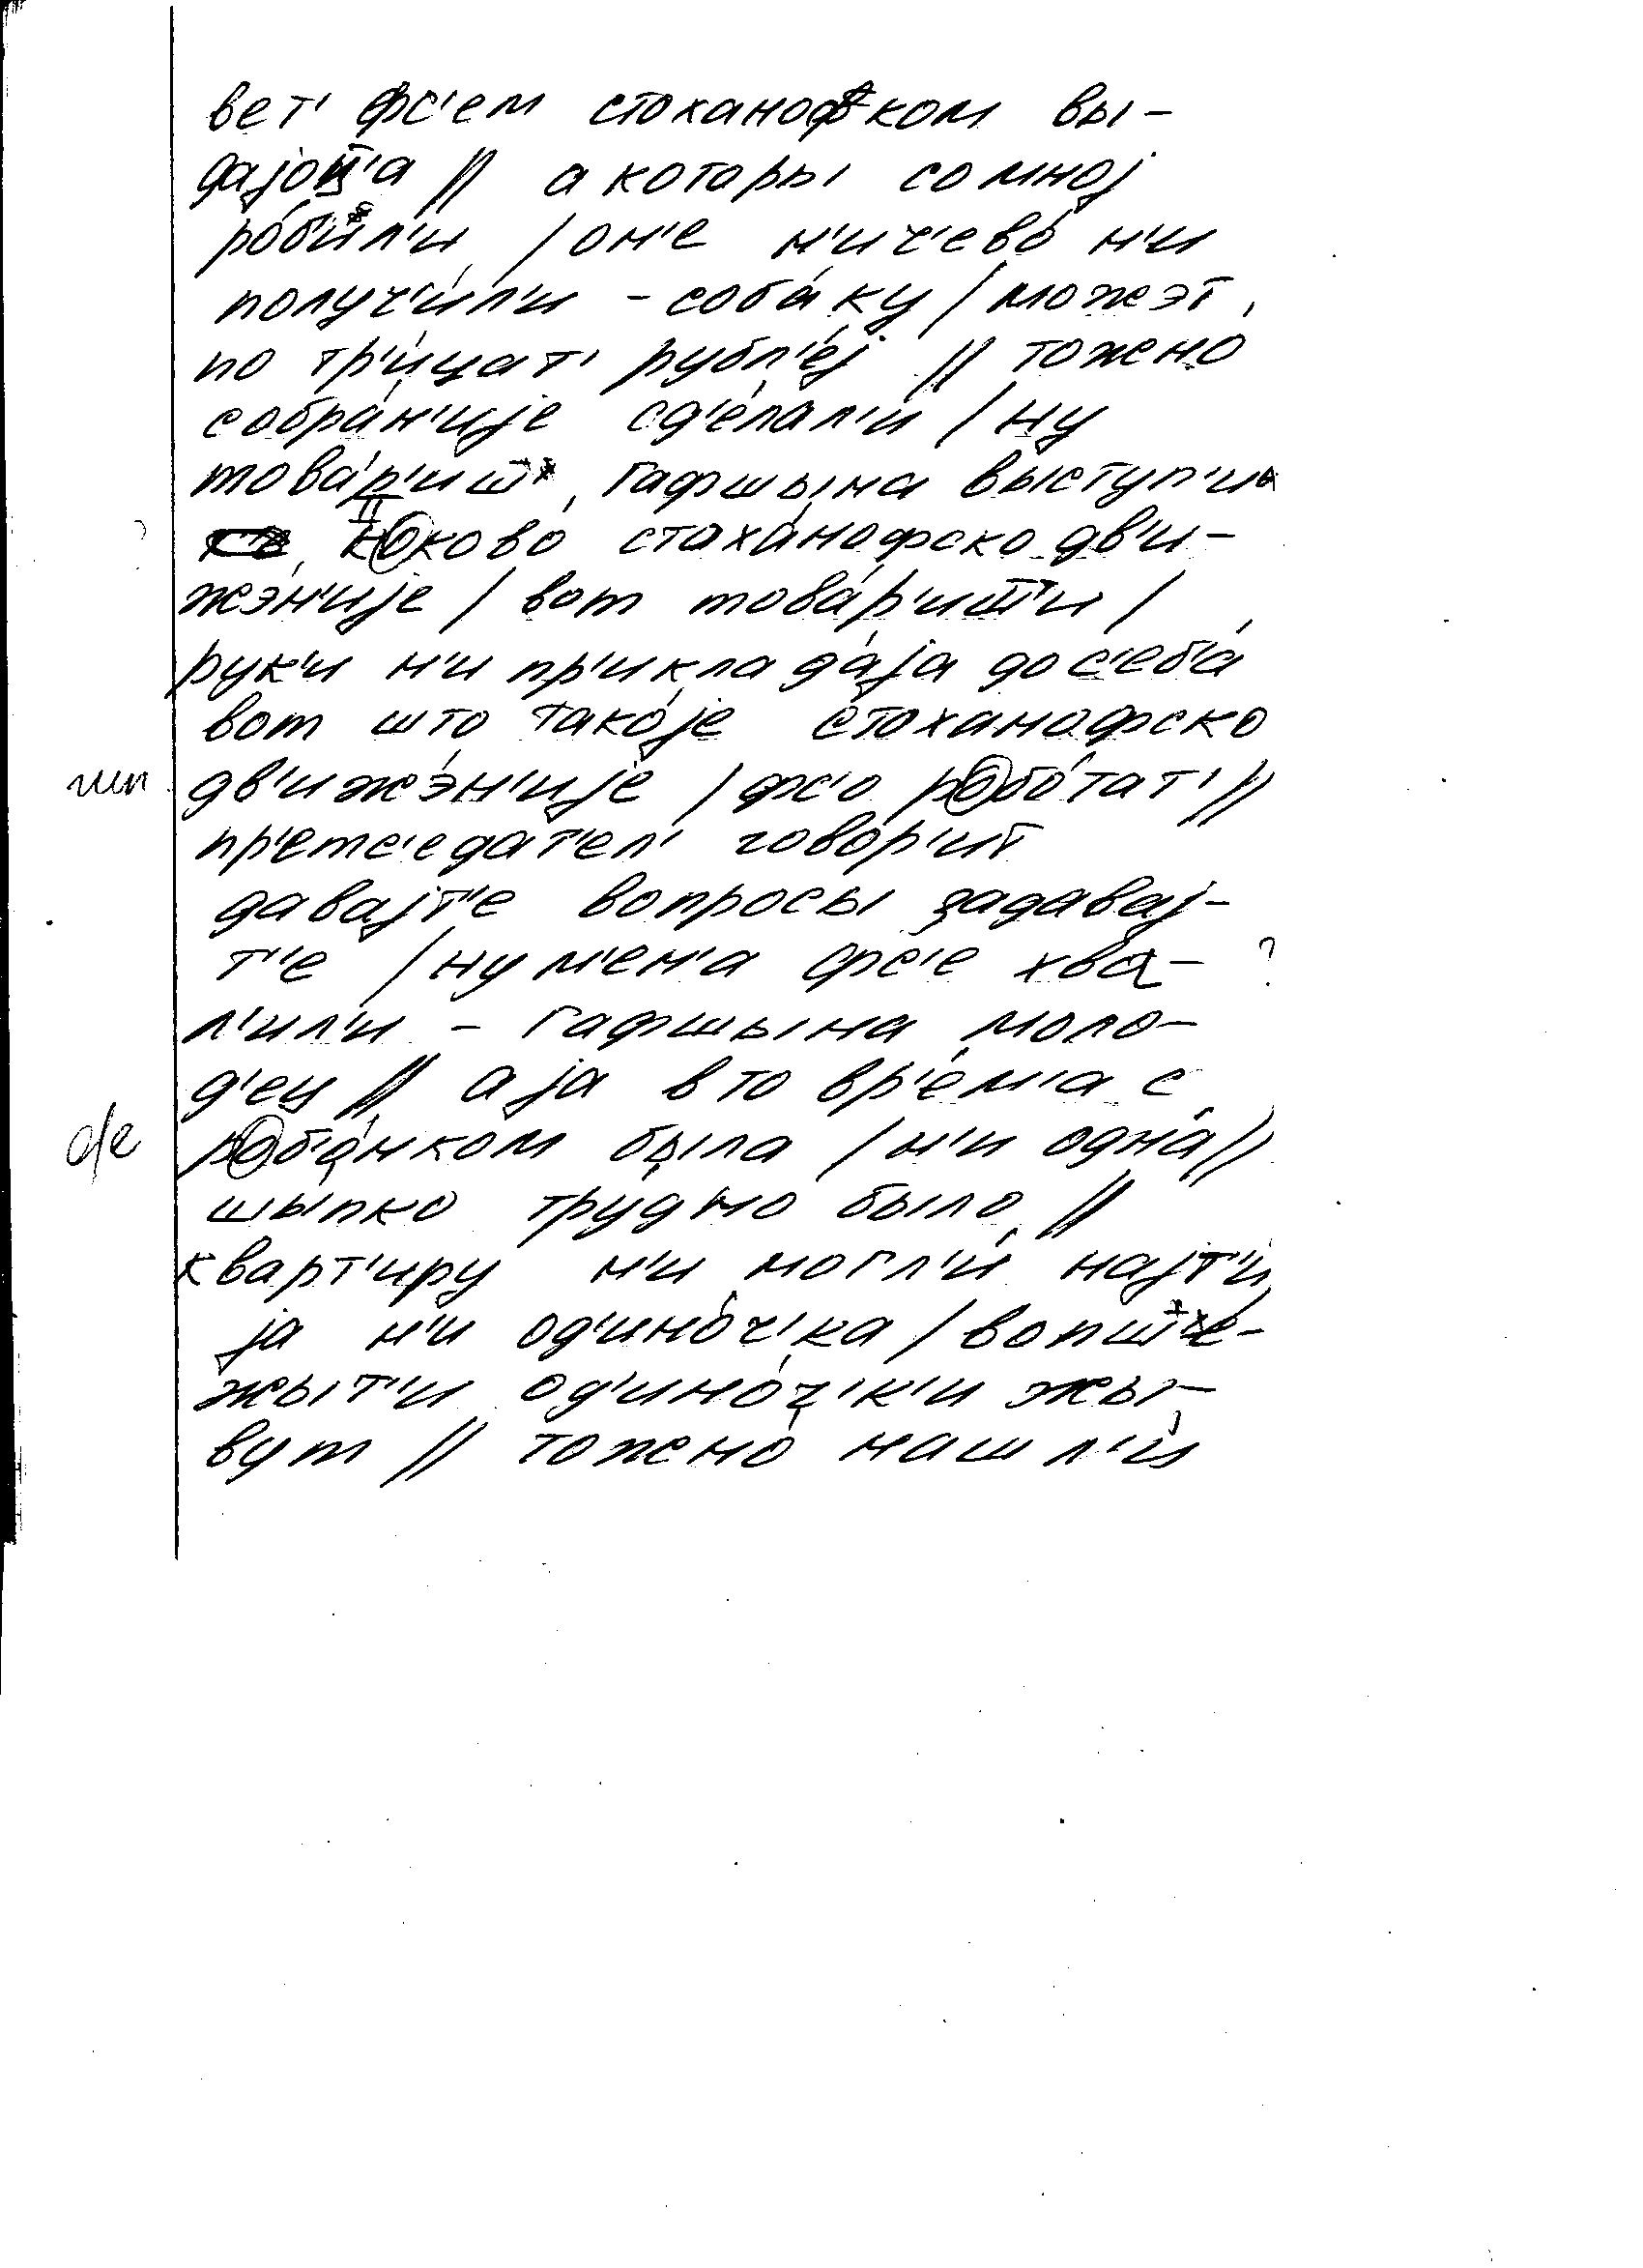 вет' фс'ем стоханофком вы-
дајоц'а // а которы со мној
роб'ил'и / он'е н'ич'ево́ н'и
получ'и́л'и - соба́ку / можэт
по тр'и́цат' рубл'е́ј // тожено
собра́н'ије сд'е́лал'и / ну
това́р'ишт' гафшы́на выступ'и
коково́ стаха́нофско дв'и-
жэ́н'ије / вот това́р'ишти /
рук'и н'и пр'иклада́ја до с'еб'а́
вот што тако́је стоханофско
дв'ижэ́н'ије / фс'о робо́тат' //
пр'етс'едат'ел' говор'и́т
давајт'е вопросы задавај-
т'е / ну м'ен'а фс'е хва- ?
л'ил'и - гафшына моло-
д'ец // а ја в то вр'е́м'а с
роб'о́нком была / н'и одна́ //
шыпко трудно было //
кварт'иру н'и могл'и́ најт'и́
ја н'и од'ино́ч'ка / вопшт'е-
жыт'и од'ино́ч'к'и жы-
вут // тожено нашл'и́